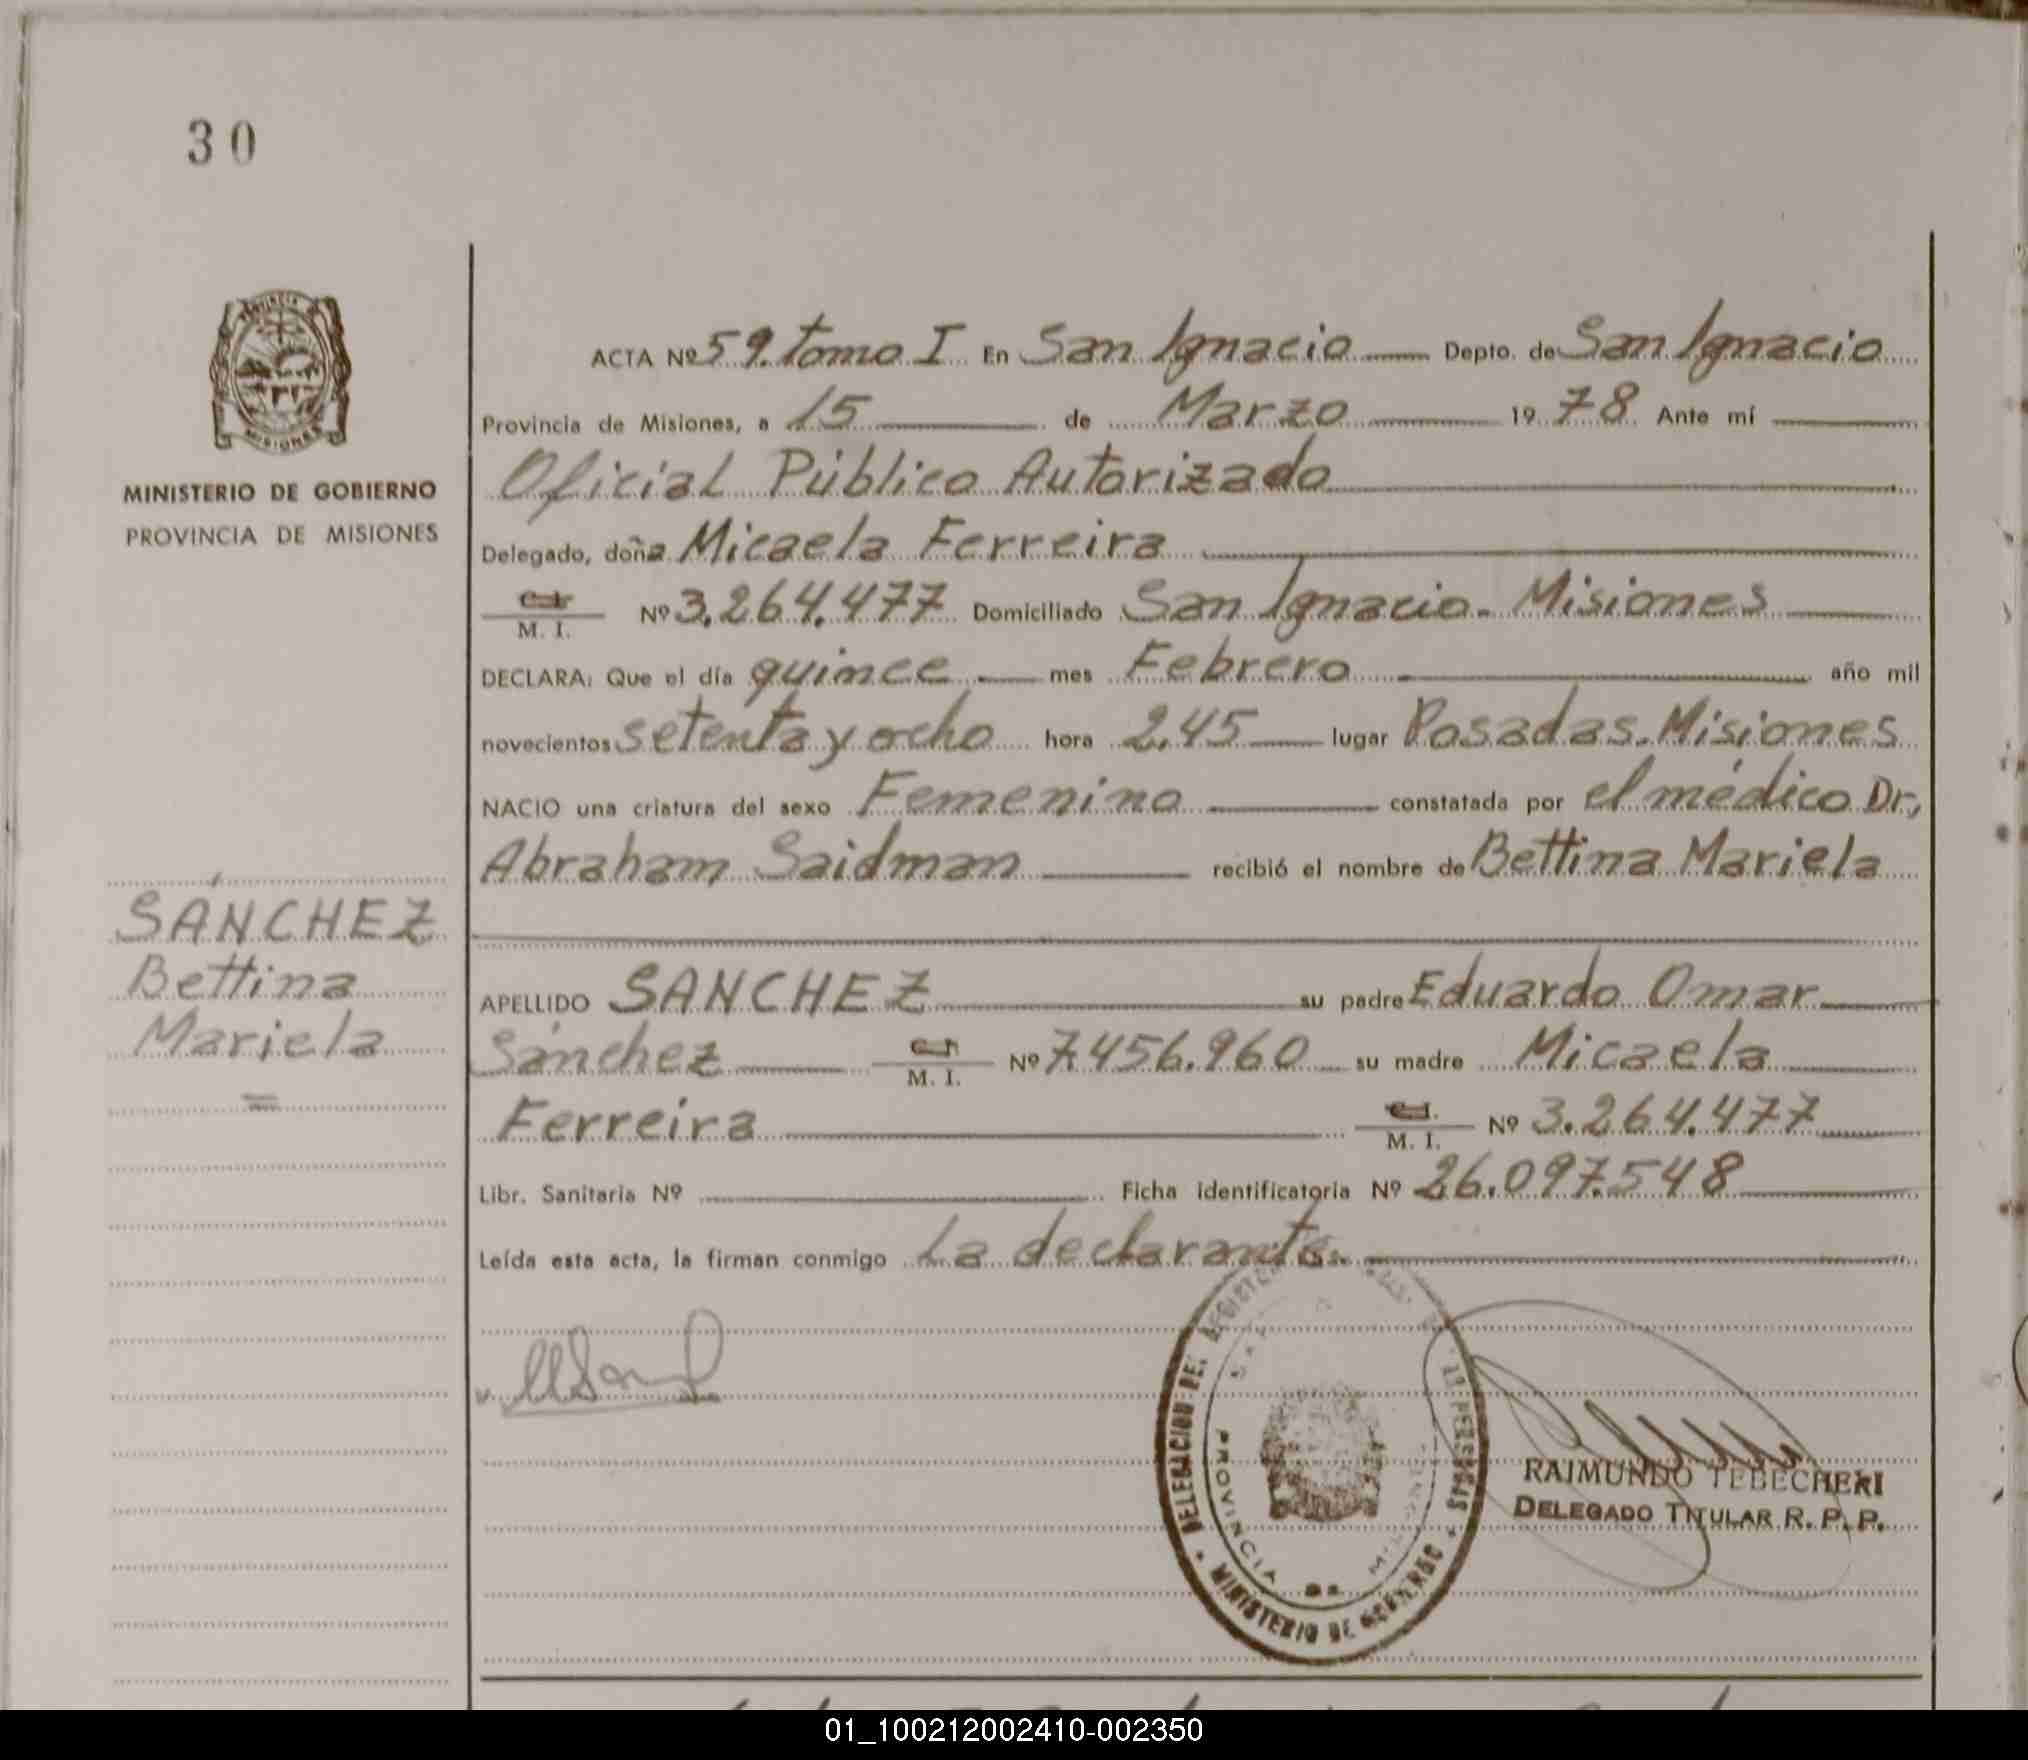 30
MINISTERIO DE GOBIERNO
PROVINCIA DE MISIONES
ACTA Nº 59. tomo I En San Ignacio Depto. de San Ignacio
Provincia de Misiones, a 15 de Marzo 1978 Ante mí
Oficial Público Autorizado
Delegado, doña Micaela Ferreira
M. I. Nº 3.264.477 Domiciliado San Ignacio. Misiones
DECLARA: Que el día quince mes Febrero año mil
novecientos setenta y ocho hora 2.45 lugar Posadas. Misiones
NACIO una criatura del sexo Femenino constatada por el médico Dr,
Abraham Saidman recibió el nombre de Bettina Mariela
SÁNCHEZ
Bettina
Mariela
APELLIDO SANCHEZ su padre Eduardo Omar
Sánchez M. I. Nº 7.456.960 su madre Micaela
Ferreira M. I. Nº 3.264.477
Libr. Sanitaria Nº Ficha identificatoria Nº 26.097.548
Leída esta acta, la firman conmigo La declarante.
DELEGACION DEL REGISTRO PERSONAS
PROVINCIA DE MISIONES
MINISTERIO DE GOBIERNO
RAIMUNDO TEBECHERI
DELEGADO TITULAR R. P. P.
01_100212002410-002350